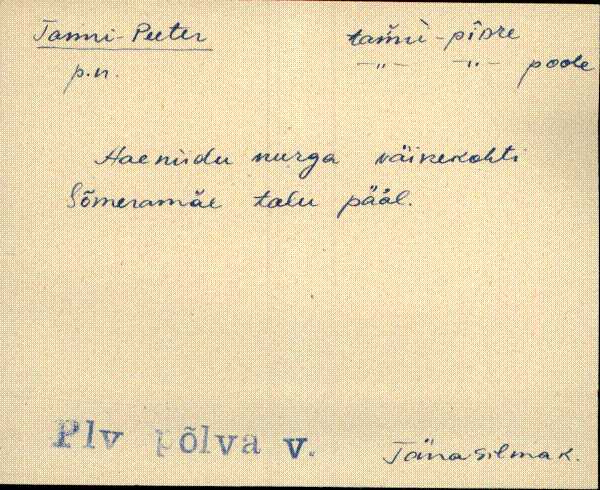 Tammi-Peeter
tam̆mì-pître
—„— —„— poole
p.n.
Haeniidu nurga väikekohti
Sõmeramäe talu pääl.
Plv põlva v.
Tänasilma k.